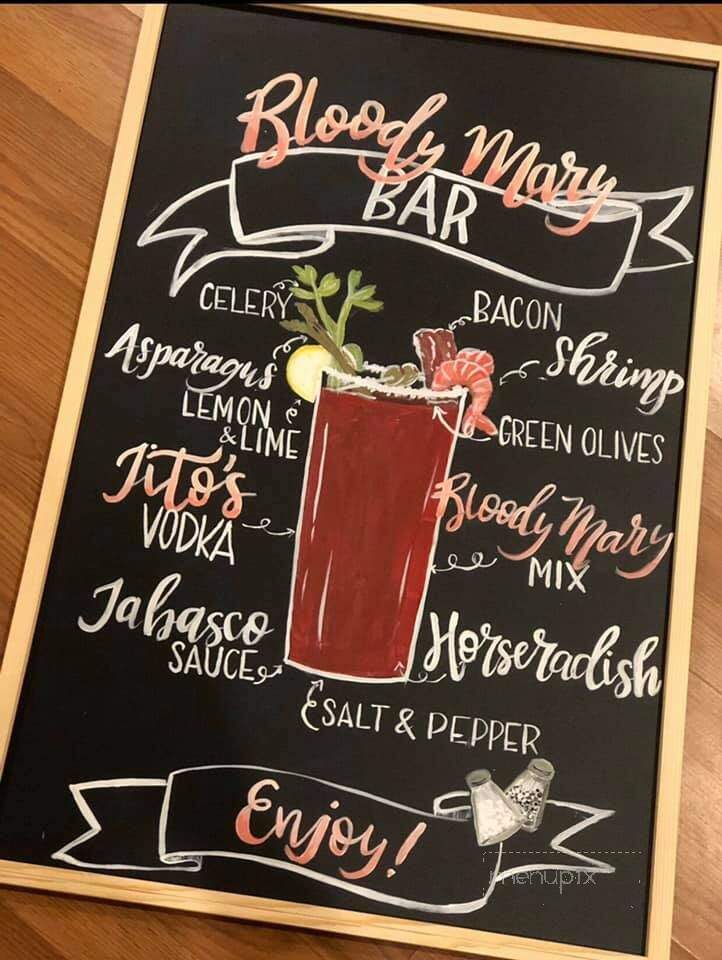 Bloody Mary
BAR
CELERY
BACON
Asparagus
Shrimp
LEMON
& LIME
GREEN OLIVES
Tito's
VODKA
Bloody Mary
MIX
Tabasco
SAUCE
Horseradish
SALT & PEPPER
Enjoy!
menupix